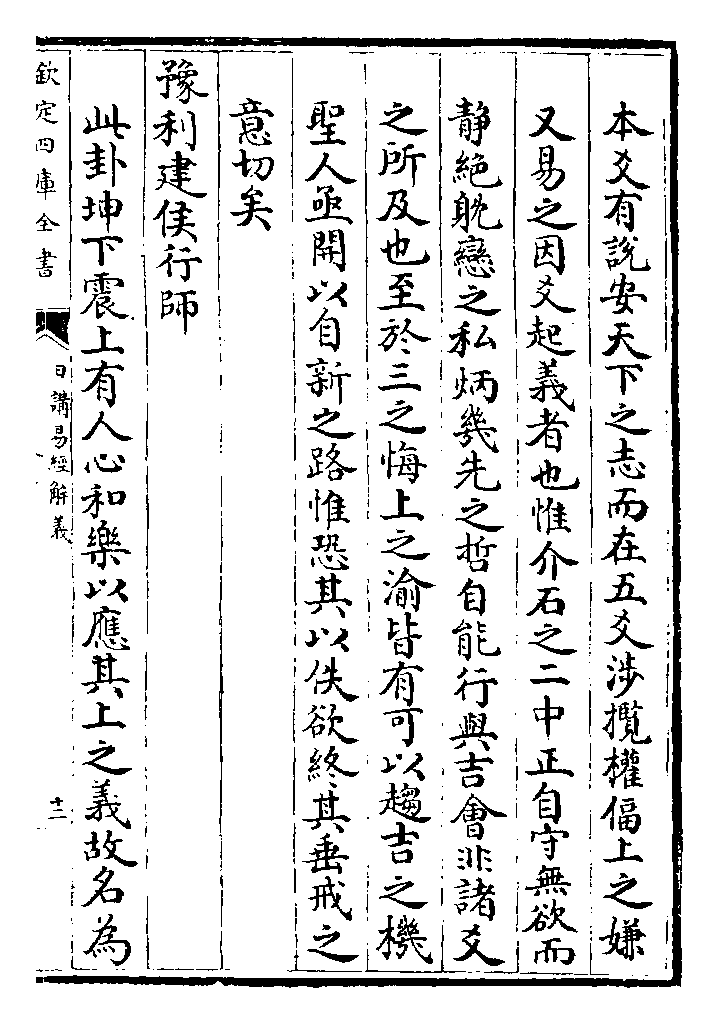 本爻有說安天下之志而在五爻涉攬權偪上之嫌
又易之因爻起義者也惟介石之二中正自守無欲而
靜絕躭戀之私炳幾先之哲自能行與吉會非諸爻
之所及也至於三之悔上之渝皆有可以趨吉之機
聖人亟開以自新之路惟恐其以佚欲終其垂戒之
意切矣
豫利建侯行師
此卦坤下震上有人心和樂以應其上之義故名為
欽定四庫全書
日講易經解義
十二